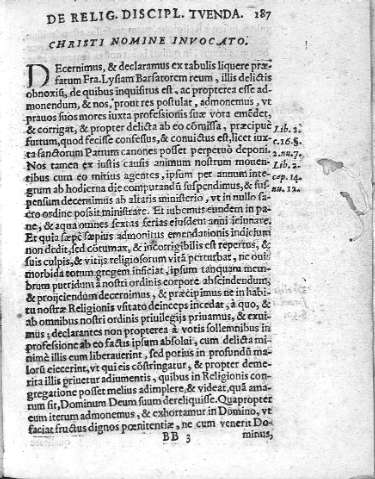 DE RELIG. DISCIPL. TVENDA. 187
CHRISTI NOMINE INVOCATO.
DEcernimus, & declaramus ex tabulis liquere præ-
fatum Fra. Lysiam Barsatorem reum, illis delictis
obnoxiũ, de quibus inquisitus est, ac propterea esse ad
monendum, & nos, prout res postulat, admonemus, vt
prauos suos mores iuxta professionis suæ vota emẽdet,
& corrigat, & propter delicta ab eo cõmissa, præcipuè
furtum, quod fecisse confessus, & conuictus est, licet iux-
ta sanctorum Patrum canones posset perpetuò deponi.
Nos tamen ex iustis causis animum nostrum mouen-
tibus cum eo mitius agentes, ipsum per annum inte-
grum ab hodierna die computandũ suspendimus, & sus-
pensum decernimus ab altaris ministerio, vt in nullo sa-
cro ordine possit ministrare. Et iubemus eundem in pa-
ne, & aqua omnes sextas ferias eiusdem anni ieiunare.
Et quia sæpè sæpius admonitus emendationis indicium
non dedit, sed cõtumax, & incorrigibilis est repertus, &
suis culpis, & vitijs religiosorum vitã perturbat, ne oues
morbida totum gregem inficiat, ipsum tanquam mem-
brum putridum à nostri ordinis corpore abscindendum,
& proijciendum decernimus, & præcipimus ne in habi-
tu nostræ Religionis vsitato deinceps incedat, à quo, &
ab omnibus nostri ordinis priuilegijs priuamus, & exui-
mus; declarantes non propterea à votis sollemnibus in
professione ab eo factis ipsum absolui, cum delicta mi-
nimè illis eum liberauerint, sed potius in profundũ ma-
lorũ eiecerint, vt qui eis cõstringatur, & propter deme-
rita illis priuetur adiumentis, quibus in Religionis con-
gregatione posset melius adimplere, & videat, quã ama-
rum sit, Dominum Deum suum dereliquisse. Quapropter
eum iterum admonemus, & exhortamur in Domino, vt
faciat fructus dignos pœnitentiæ, ne cum venerit Do-
BB 3 minus,
Lib. 2.
c. 16. §.
2. nu. 7.
Lib. 2.
cap. 14.
nu. 12.